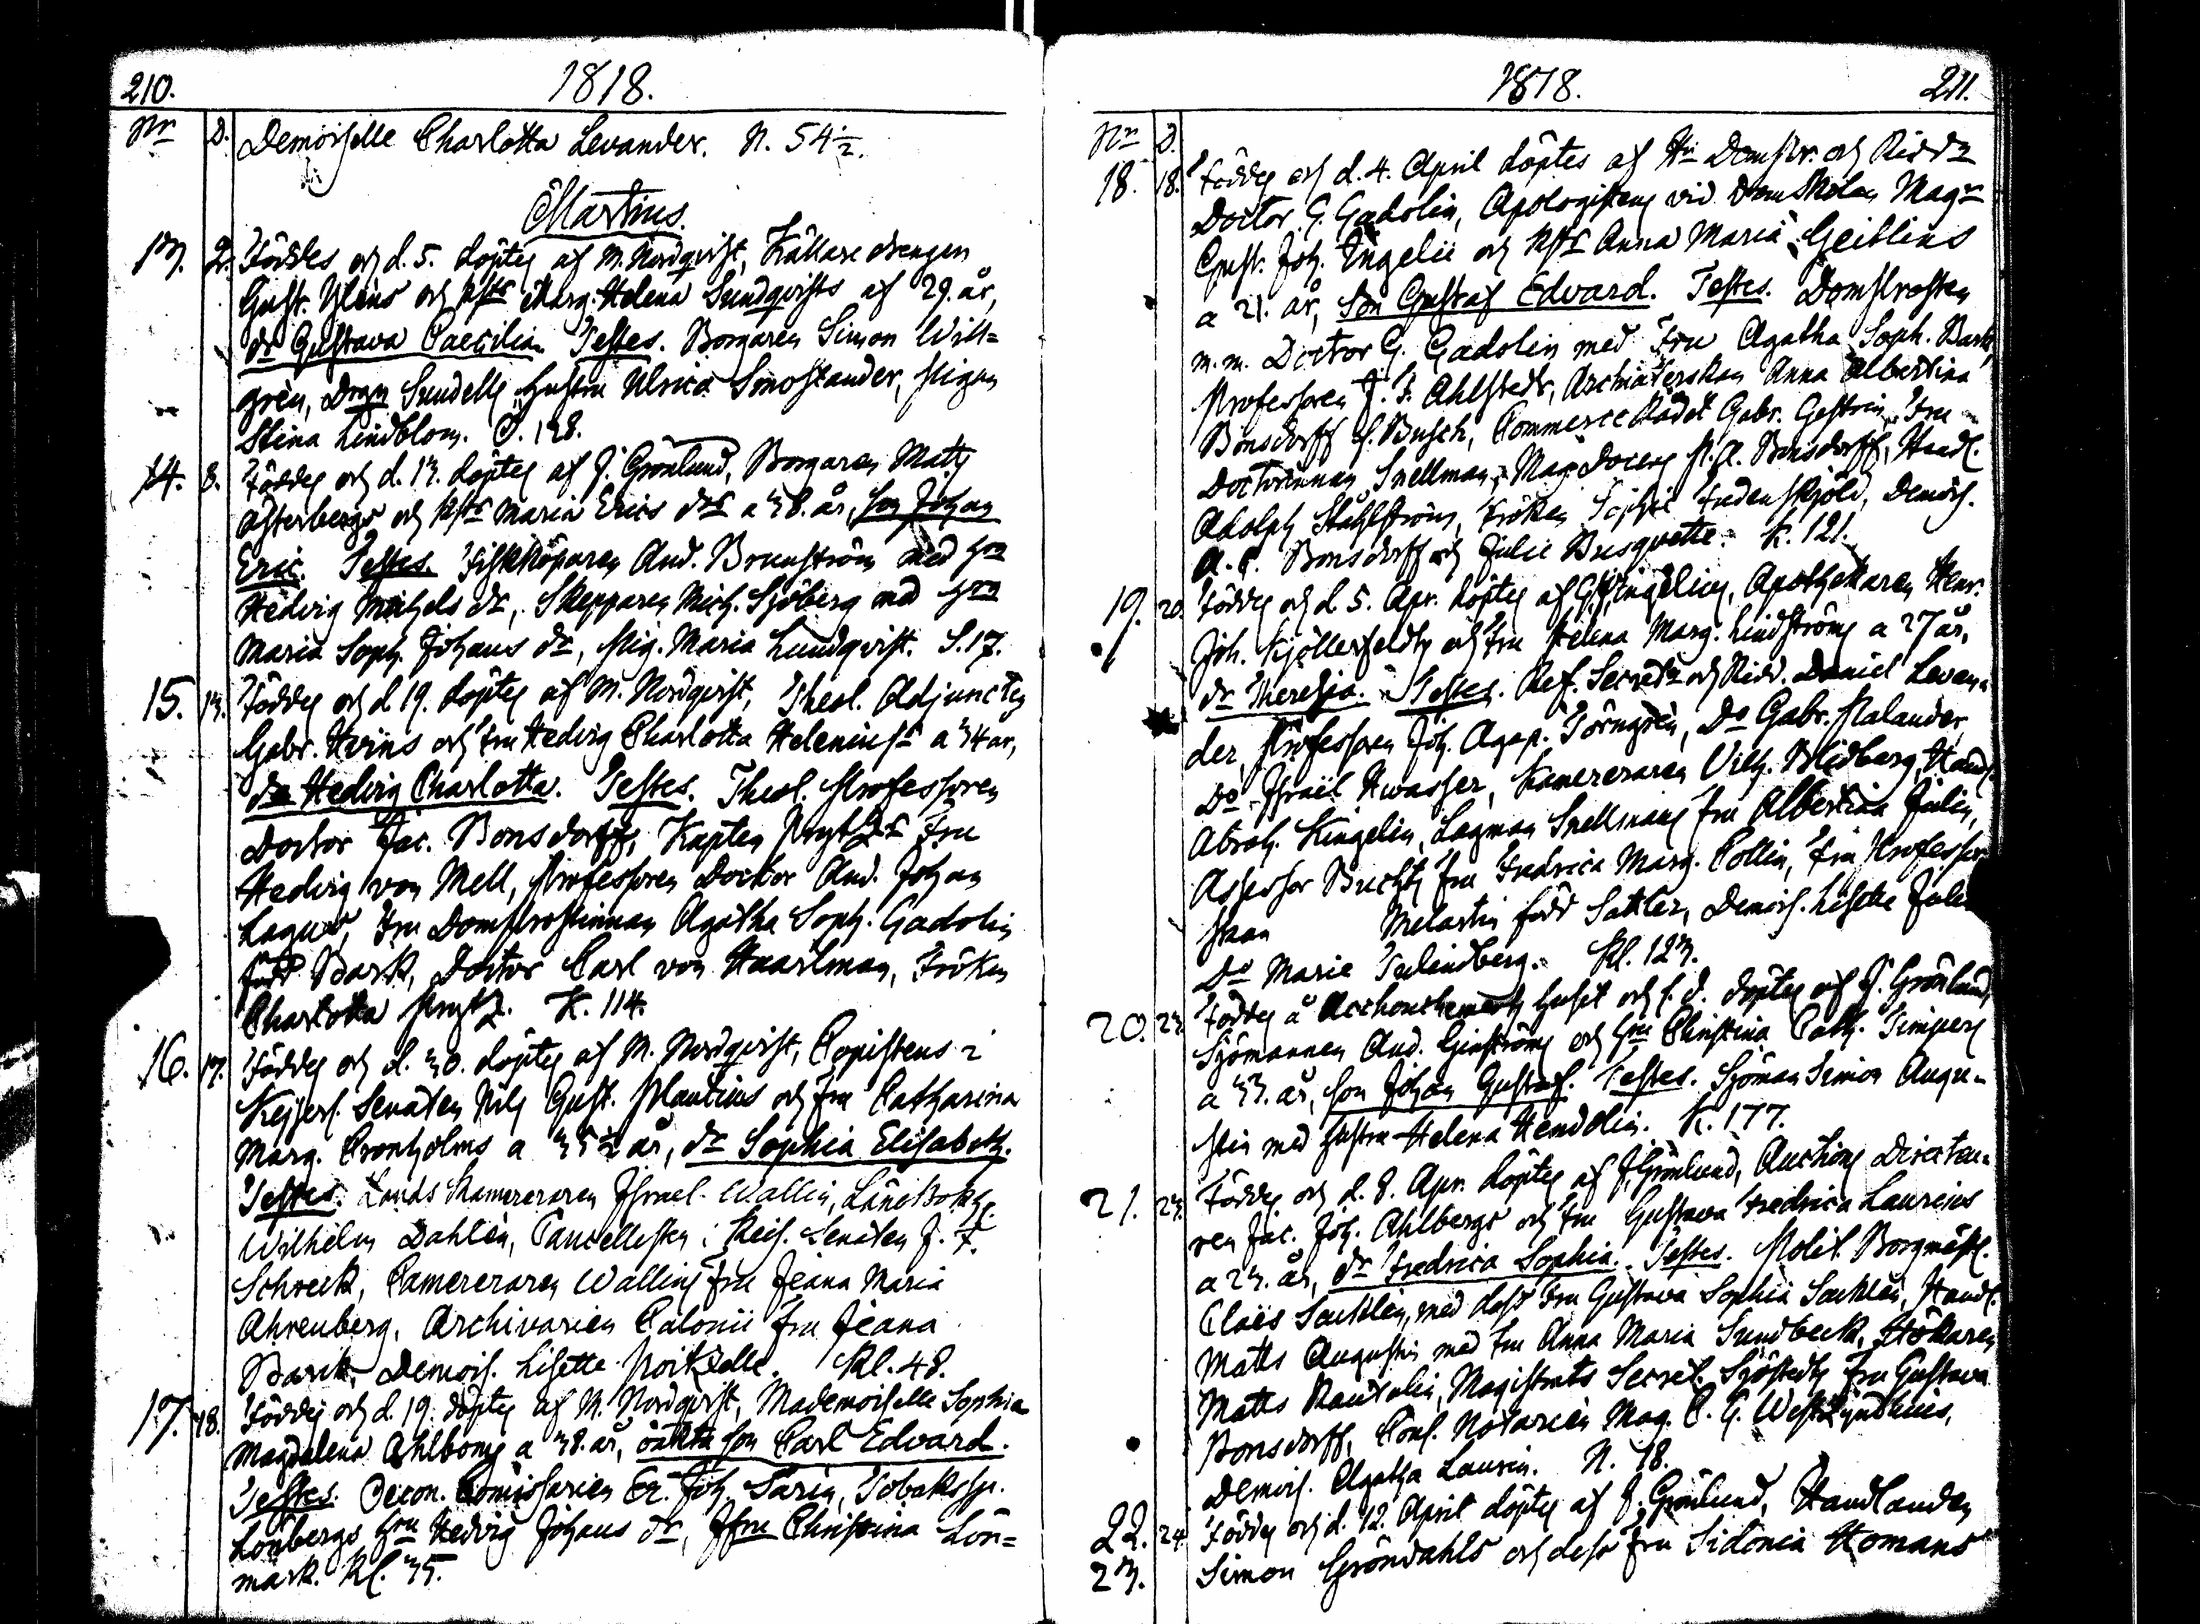 210.
1818.
Nr D. Demoiselle Charlotta Levander. N. 54½.
Martius.
13. 2. Föddes och d. 5. döptes af M. Nordqvist, Källare drengen
Gust. Ylens och hstr Marg. Helena Sundqvists af 29. år,
dr Gustava Caecilia. Testes. Borgaren Simon Will=
grèn, Drgn Sundells hustru Ulrica Smolander, pigan
Stina Lindblom. S. 138.
14. 8. Föddes och d. 13. döptes af J. Grönlund, Borgaren Matts
Österbergs och hstr Maria Erics drs a 38. år, son Johan
Eric. Testes. Fiskköparen And. Brunström med hru
Hedvig Michels dr, Skepparen Mich. Sjöberg med hru
Maria Soph. Johans dr, Pig. Maria Lundqvist. S. 17.
15. 13. Föddes och d 19. döptes af M. Nordqvist, Theol. Adjunctens
Gabr. Heins och Fru Hedvig Charlotta Helenius a 34 år,
dr Hedvig Charlotta. Testes. Theol. Professoren
Doctor Jac. Bonsdorff, Kapten Prytz's Fru
Hedvig von Mell, Professoren Doctor And. Johan
Lagus, Fru Domprostinnan Agatha Soph. Gadolin
född Bark, Doctor Carl von Haartman, Fröken
Charlotta Prytz. K. 114.
16. 17. Föddes och d. 30. döptes af M. Nordqvist, Copistens i
Kejserl. Senaten Nils Gust. Plantins och Fru Catharina
Marg. Cronholms a 35½ år, dr Sophia Elisabeth.
Testes. Lands Kamereraren Israel Wallin, Länsbokh.
Wilhelm Dahlèn, Cancellisten i Keis. Senaten J. F.
Schreck, Camereraren Wallins Fru Jeana Maria
Ahrenberg, Archivarien Calonii Fru Jeana
Barck, Demois. Lisette Kl. 48.
17. 18. Föddes och d. 19. döptes af M. Nordqvist, Mademoiselle Sophia
Magdalena Ahlboms a 38. år, oäkta son Carl Edvard.
Testes. Oecon. Comissarien Er. Joh. Sarin, Tobakssp.
Lönbergs hru Hedvig Johans dr, Jfru Christina Lön=
märk. Kl. 35.
1818.
211.
Nr D.
18. 18. Föddes och d. 4. April döptes af Hr Dompr. och Riddr
Doctor G. Gadolin, Apologistens vid Domskolan Magr
Gust. Joh. Ingelii och hstr Anna Maria Geitlins
a 21. år, Son Gustaf Edvard. Testes. Domprosten
m. m. Doctor G. Gadolin med Fru Agatha Soph. Bark,
Professoren J. F. Ahlstedt, Archiaterskan Anna Albertina
Bonsdorff f. Busch, Commerce Rådet Gabr. Gestrin, Fru
Doctorinnan Snellman, Mag. Docens P. A. Bonsdorff, Handl.
Adolph Ståhlström, Fröken Sophie Indenskjöld, Demois.
A. C. Bonsdorff och Julie Busqvette. K. 121.
19. 20. Föddes och d. 5. Apr. döptes af G. Ingelius, Apothekaren Henr.
Joh. Kjöllerfeldts och Fru Helena Marg. Lindströms a 27 år,
dr Theresia. Testes. Ref. Secretr och Ridd. Daniel Levan=
der, Professoren Joh. Agap. Törngrèn, Do Gabr. Palander,
Do Israël Hwasser, Kamereraren Vilh. Blidberg, Handl.
Abrah. Kingelin, Lagman Snellmans Fru Albertina Julin,
Assessor Buchts Fru Fredrica Marg. Collin, Fru Professor
skan Melartin född Sattler, Demois. Lisette Julin
Do Marie Tulindberg. Kl. 123.
20. 23. Föddes å Accouchements huset och s. d. döptes af J. Grönlund,
Sjömannen And. Ginströms och hru Christina Cath. Simpers
a 33. år, son Johan Gustaf. Testes. Sjöman Simon Augu=
stin med hustru Helena Hemdolin. K. 177.
21. 23. Föddes och d. 8. Apr. döptes af J. Grönlund, Auctions Directeu=
ren Jac. Joh. Ahlbergs och Fru Gustava Fredrica Laurens
a 23. år, dr Fredrica Sophia. Testes. Polit. Borgmäst.
Claës Sacklèn, med dess Fru Gustava Sophia Sacklèn, Handl.
Matts Augustin med Fru Anna Maria Sundbeck, Hökaren
Matts Rautelin, Magistrats Secret. Sjöstedts Fru Gustava
Bonsdorff, Cons. Notarien Mag. C. G. Westzynthius,
Demois. Agatha Laurin. N. 18.
22. 24. Föddes och d. 12. April döptes af J. Grönlund, Handlanden
23. Simon Gröndahls och dess Fru Sidonia Homans